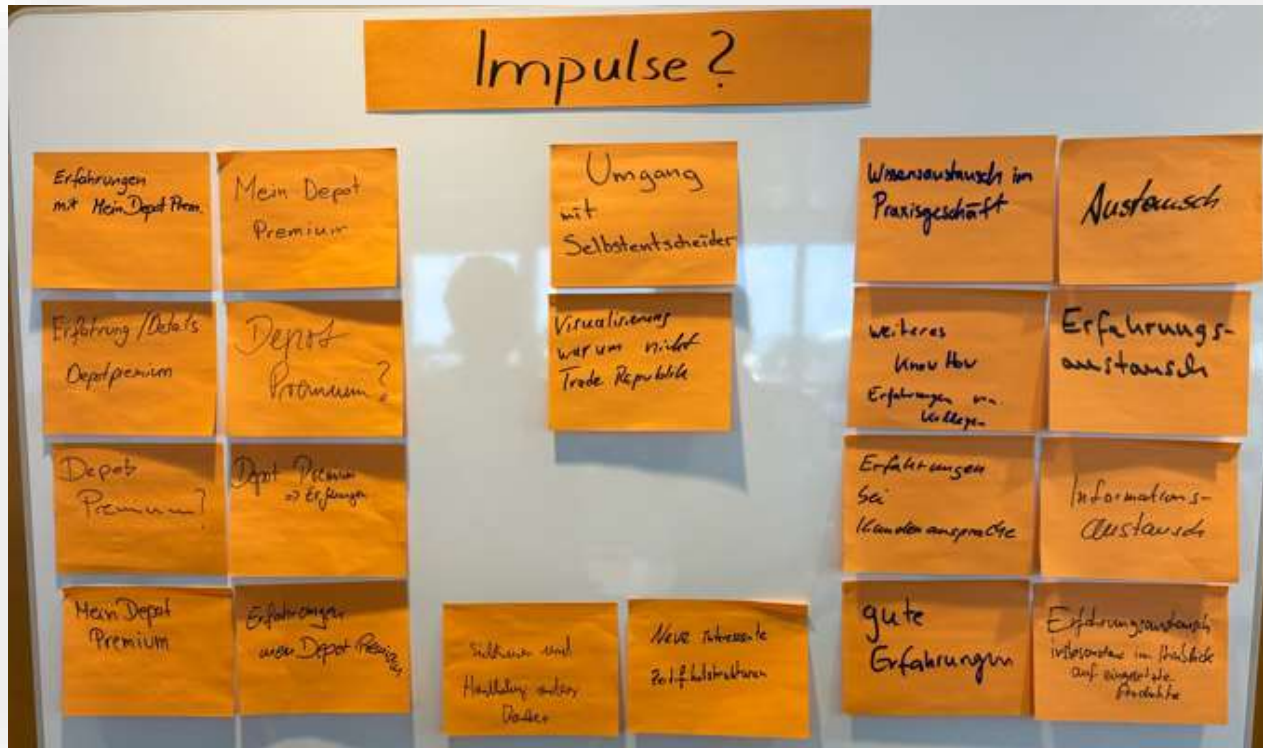 Impulse?
Erfahrungen
mit Mein Depot Prem.
Mein Depot
Premium
Erfahrung / Details
Depotpremium
Depot
Premium?
Depot
Premium?
Depot Premium
=> Erfahrungen
Mein Depot
Premium
Erfahrungen
mein Depot Premium
Umgang
mit
Selbstentscheider
Visualisierung
warum nicht
Trade Republik
und
Handhabung anderer
Neue interessante
Zertifikatstrukturen
Wissensaustausch im
Praxisgeschäft
Austausch
weiteres
Know How
Erfahrungen von
Kollegen
Erfahrungs-
austausch
Erfahrungen
bei
Kundenansprache
Informations-
austausch
gute
Erfahrungen
Erfahrungsaustausch
insbesondere im Hinblick
auf eingesetzte
Produkte